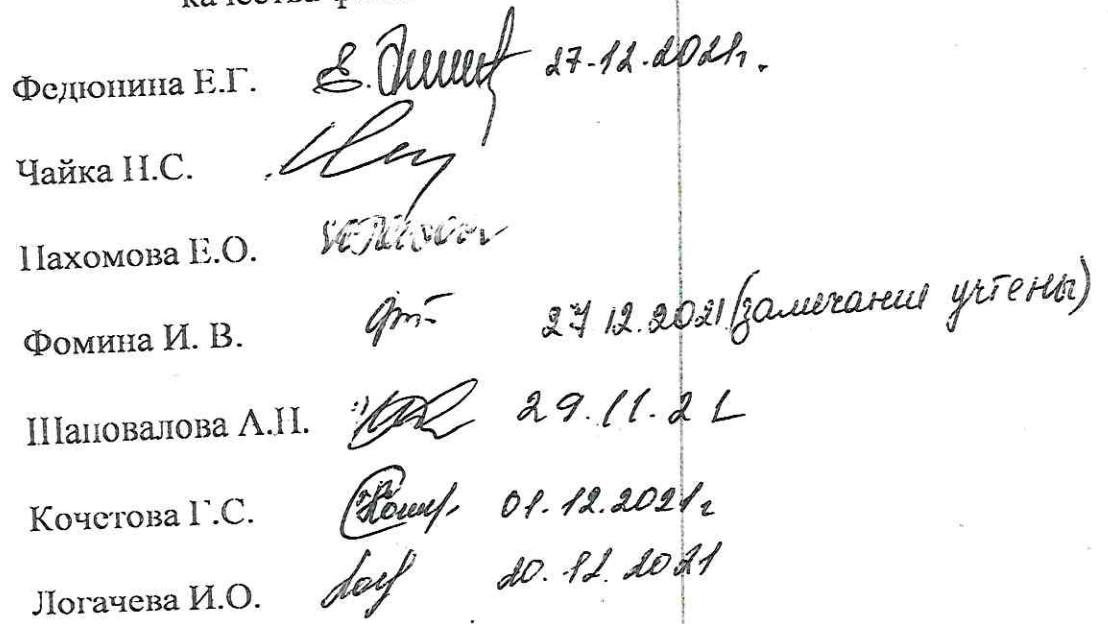 качества ф
Федюнина Е.Г. 27.12.2021г.
Чайка Н.С.
Пахомова Е.О.
Фомина И. В. 27 12.2021 (замечания учтены)
Шаповалова А.Н. 29.11.21
Кочетова Г.С. 01.12.2021г
Логачева И.О. 20.12.2021